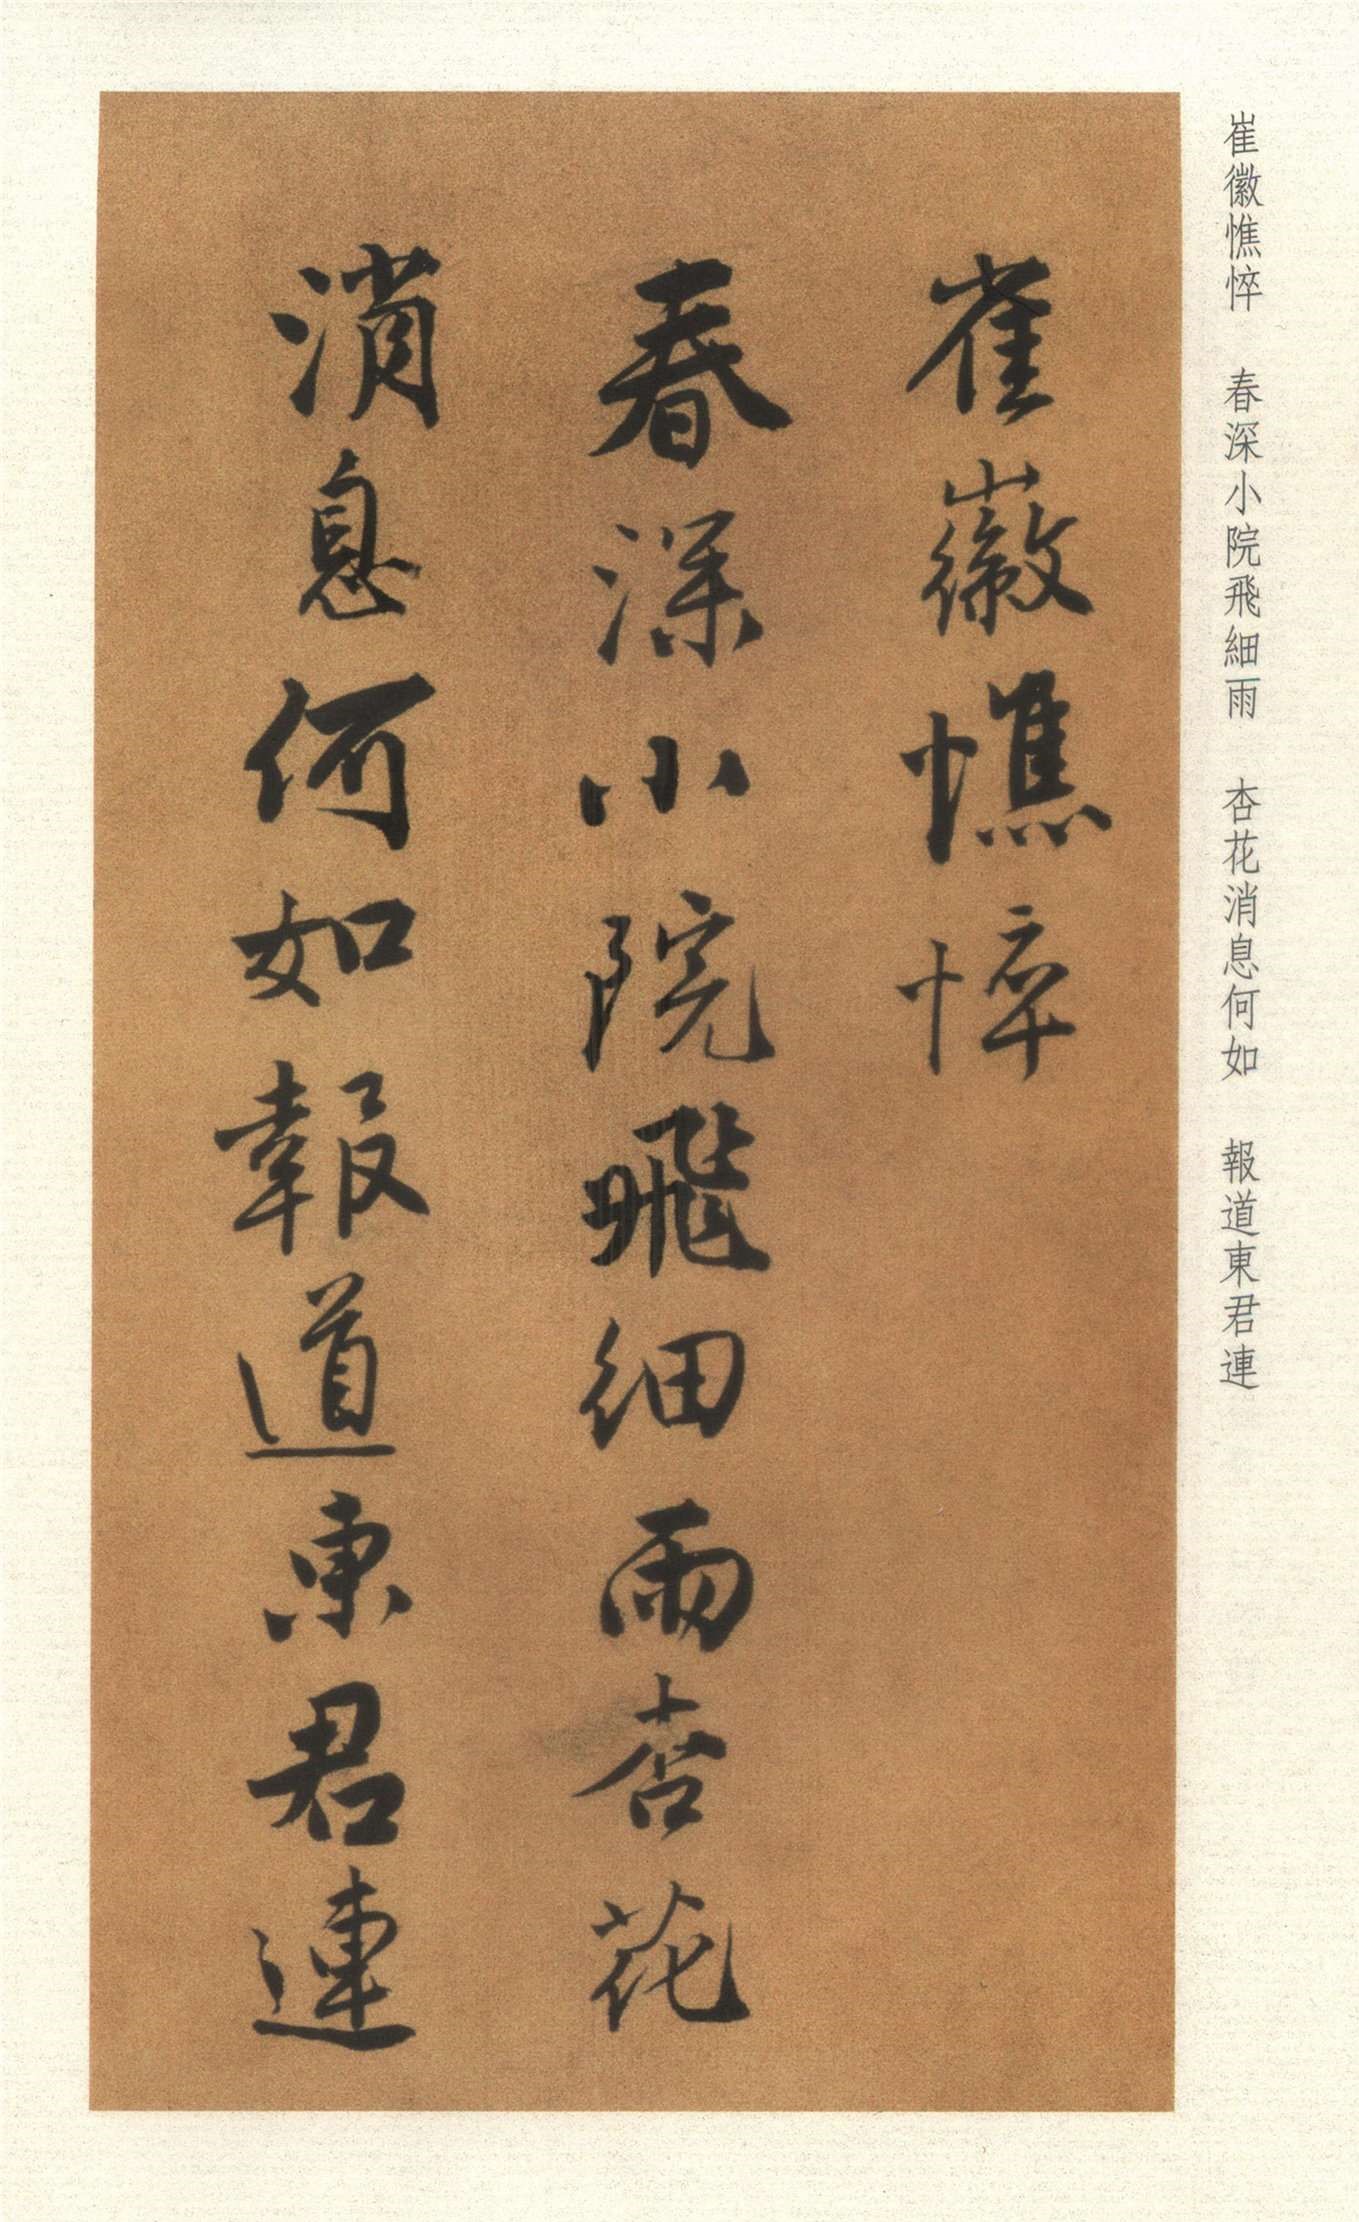 崔徽憔悴　春深小院飛細雨　杏花消息何如　報道東君連
崔徽憔悴
春深小院飛細雨杏花
消息何如報道東君連